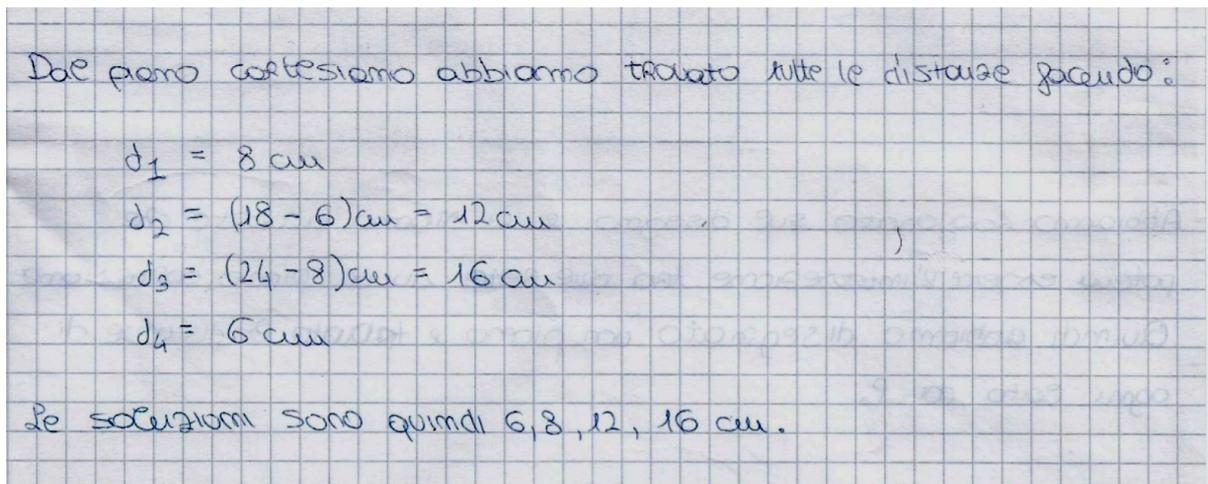 Dal piano cartesiano abbiamo trovato tutte le distanze facendo:
d1 = 8 cm
d2 = (18 - 6)cm = 12 cm
d3 = (24 - 8)cm = 16 cm
d4 = 6 cm
Le soluzioni sono quindi 6, 8, 12, 16 cm.